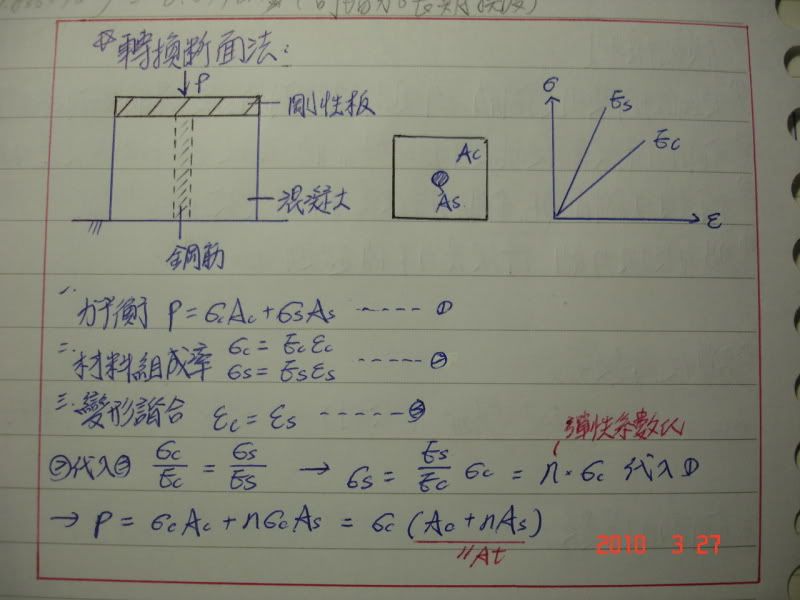 轉換斷面法:
P
剛性板
混凝土
鋼筋
Ac
As
σ
Es
Ec
ε
一. 力平衡 P = σcAc + σsAs ----- ①
二. 材料組成率 σc = Ecεc
σs = Esεs ----- ②
三. 變形諧合 εc = εs ----- ③
彈性係數比
②代入③ σc/Ec = σs/Es → σs = Es/Ec σc = n·σc 代入①
→ P = σcAc + nσcAs = σc (Ac + nAs)
"At
2010 3 27